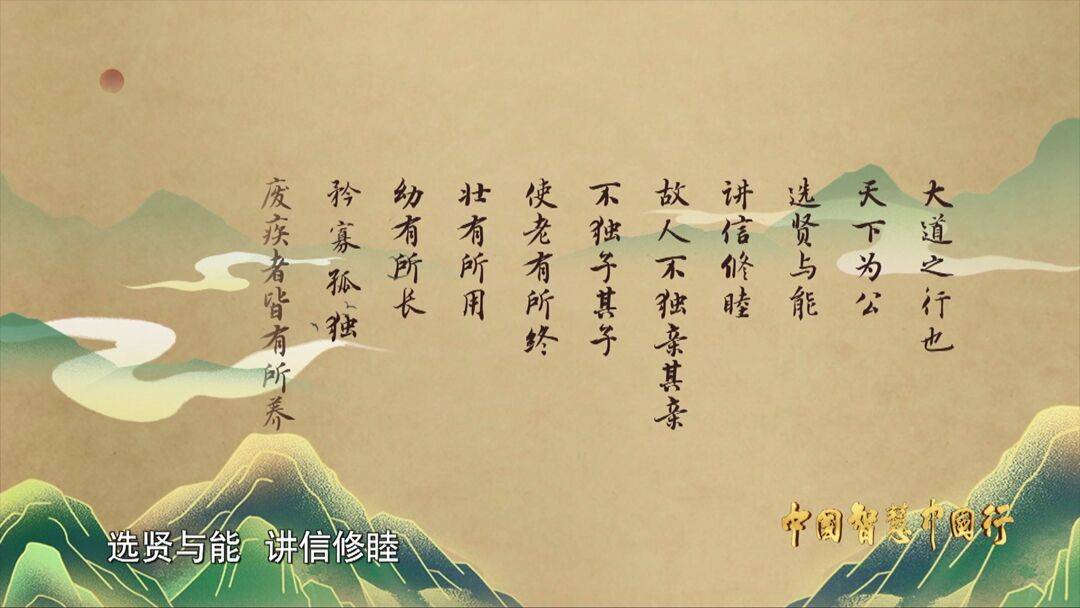 大道之行也
天下为公
选贤与能
讲信修睦
故人不独亲其亲
不独子其子
使老有所终
壮有所用
幼有所长
矜寡孤独
废疾者皆有所养
选贤与能 讲信修睦
中国智慧中国行